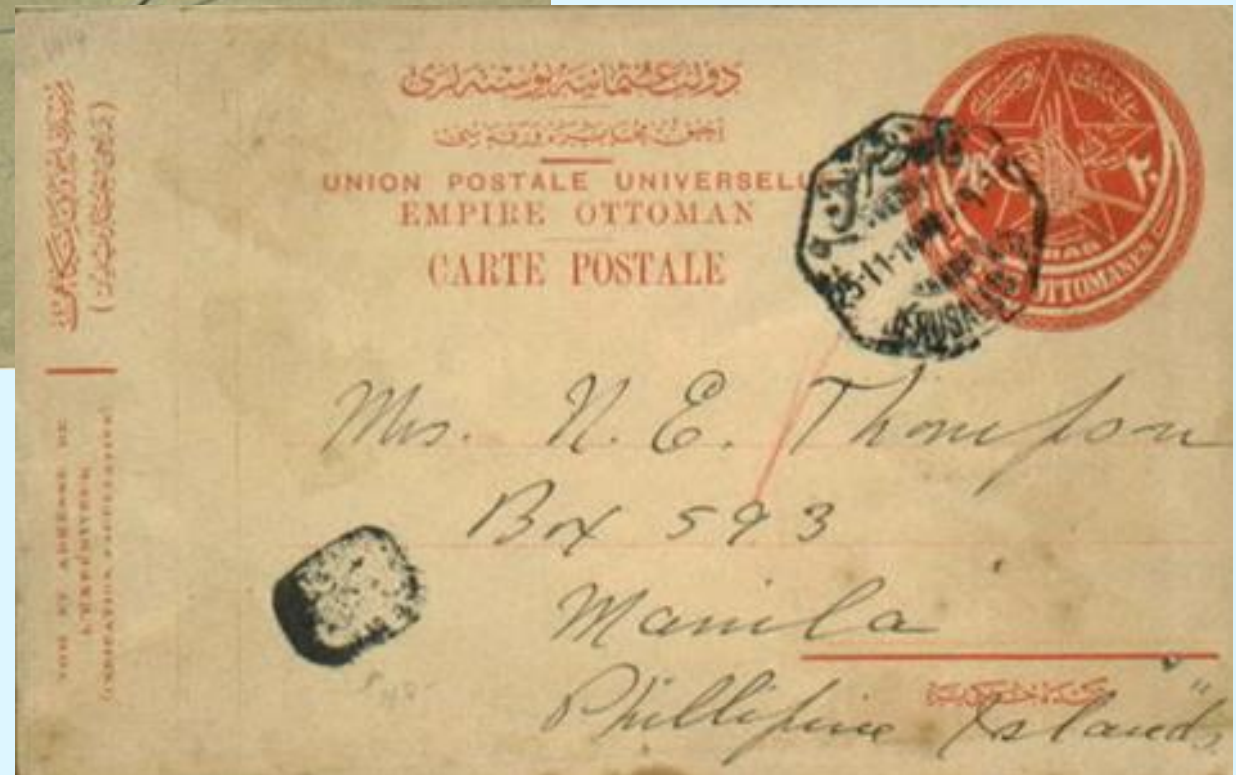 دولت عثمانیه پوسته لری
UNION POSTALE UNIVERSELL
EMPIRE OTTOMAN
CARTE POSTALE
٢٠
OTTOMANES
JERUSALEM
Mrs. N. E. Thompson
Box 593
Manila
Phillipine Islands
NOM ET ADRESSE DE
L'ENVOYEUR
(INDICATION FACULTATIVE)